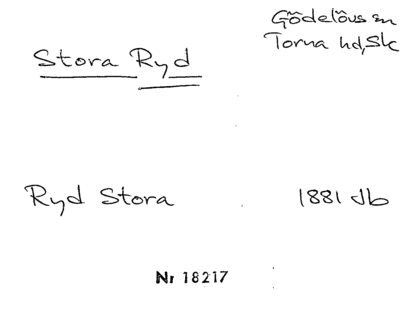 Gödelövs sn
Torna hd, Sk
Stora Ryd
Ryd Stora 1881 db
Nr 18217